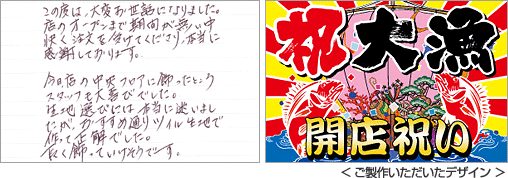 この度は、大変お世話になりました。
店のオープンまで期間が無い中
快く注文を受けてくださり、本当に
感謝しております。
今日店の中央フロアに飾ったところ
スタッフも大喜びでした。
生地選びには本当に迷いまし
たが、おすすめ通りツイル生地で
作って正解でした。
長く飾っていけそうです。
祝 大漁
開店祝い
＜ご製作いただいたデザイン＞